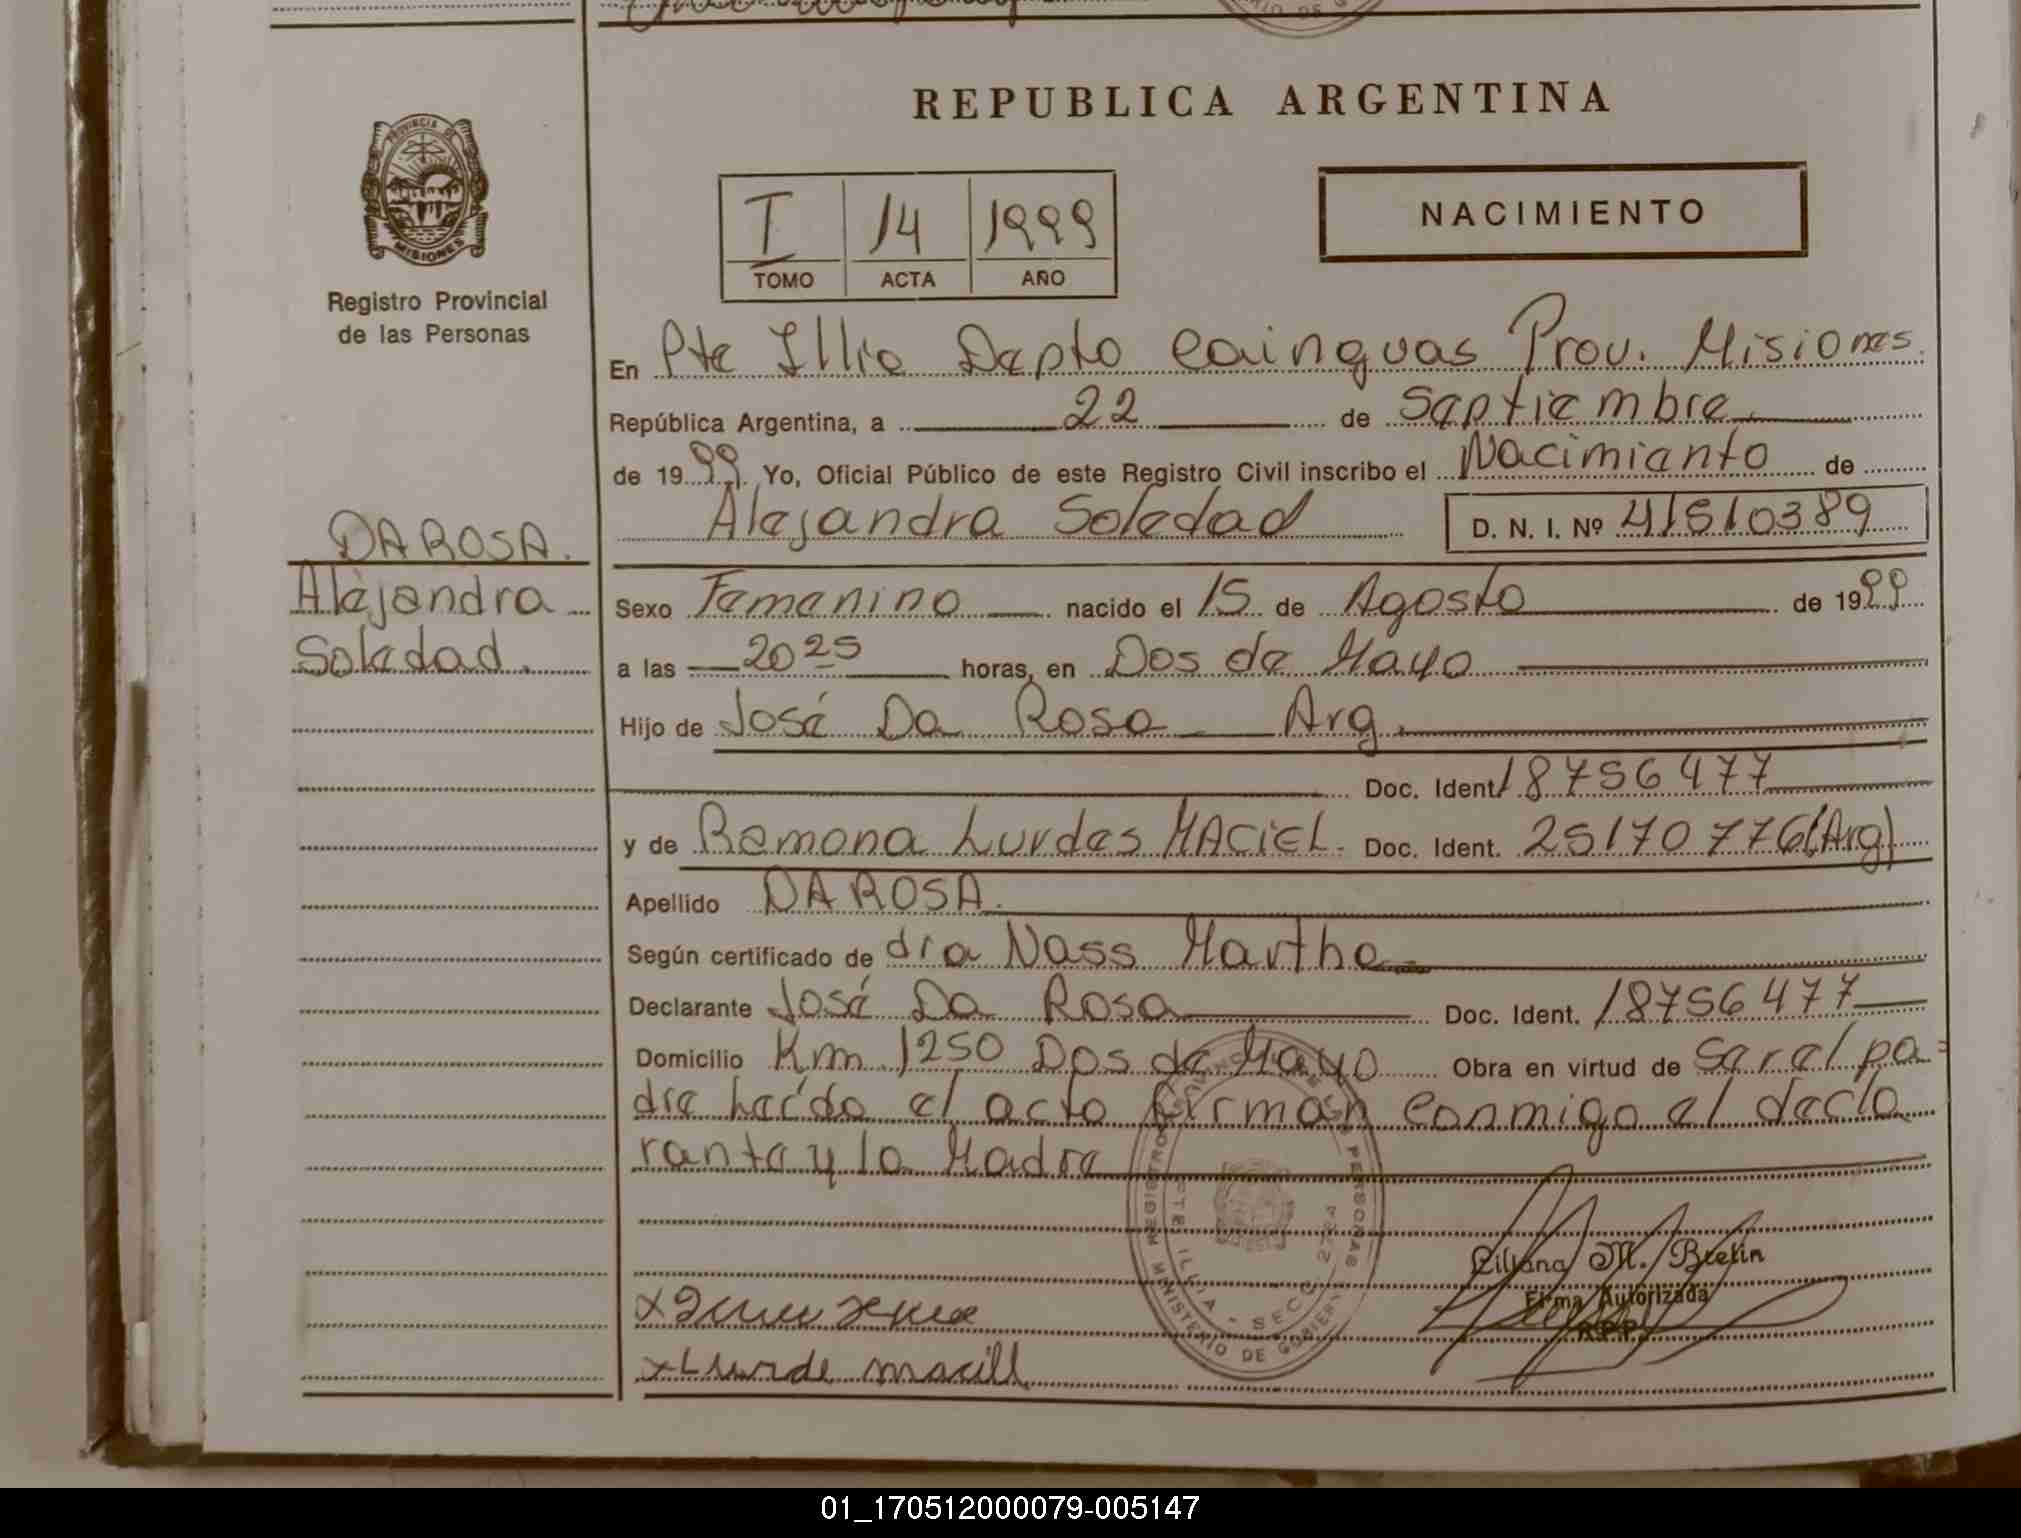 REPUBLICA ARGENTINA
PROVINCIA DE
MISIONES
Registro Provincial
de las Personas
I 14 1999
TOMO ACTA AÑO
NACIMIENTO
En Pte Illia Depto Cainguas Prov. Misiones.
República Argentina, a 22 de Septiembre
de 1999. Yo, Oficial Público de este Registro Civil inscribo el Nacimiento de
Alejandra Soledad D. N. I. Nº 41510389
DA ROSA.
Alejandra
Soledad.
Sexo Femenino nacido el 15 de Agosto de 1999
a las 20 25 horas, en Dos de Mayo
Hijo de José Da Rosa Arg.
Doc. Ident. 18756477
y de Ramona Lurdes MACIEL. Doc. Ident. 25170776 (Arg)
Apellido DA ROSA.
Según certificado de dra Nass Martha
Declarante José Da Rosa Doc. Ident. 18756477
Domicilio Km 1250 Dos de Mayo Obra en virtud de Ser el pa=
dre Leído el acto firman conmigo el decla
rante y la Madre
REGISTRO PERSONAS
MINISTERIO DE GOBIERNO
Liliana M. Brelin
Firma Autorizada
R.P.P.
x Lurde macill
01_170512000079-005147